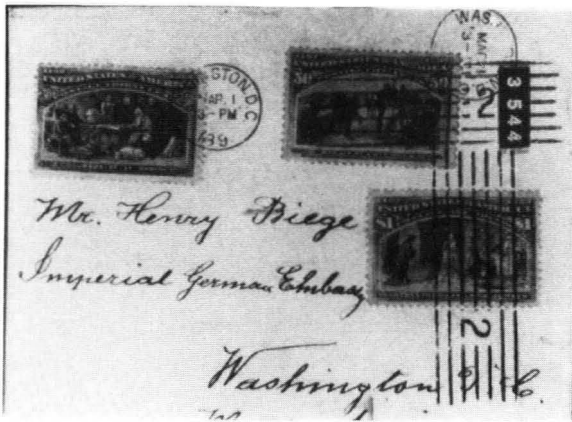 UNITED STATES OF AMERICA
GTON, D.C.
MAR. 1
3-PM
WAS
2
3 544
$1 $1
Mr. Henry Biege
Imperial German Embassy
2
Washington D.C.